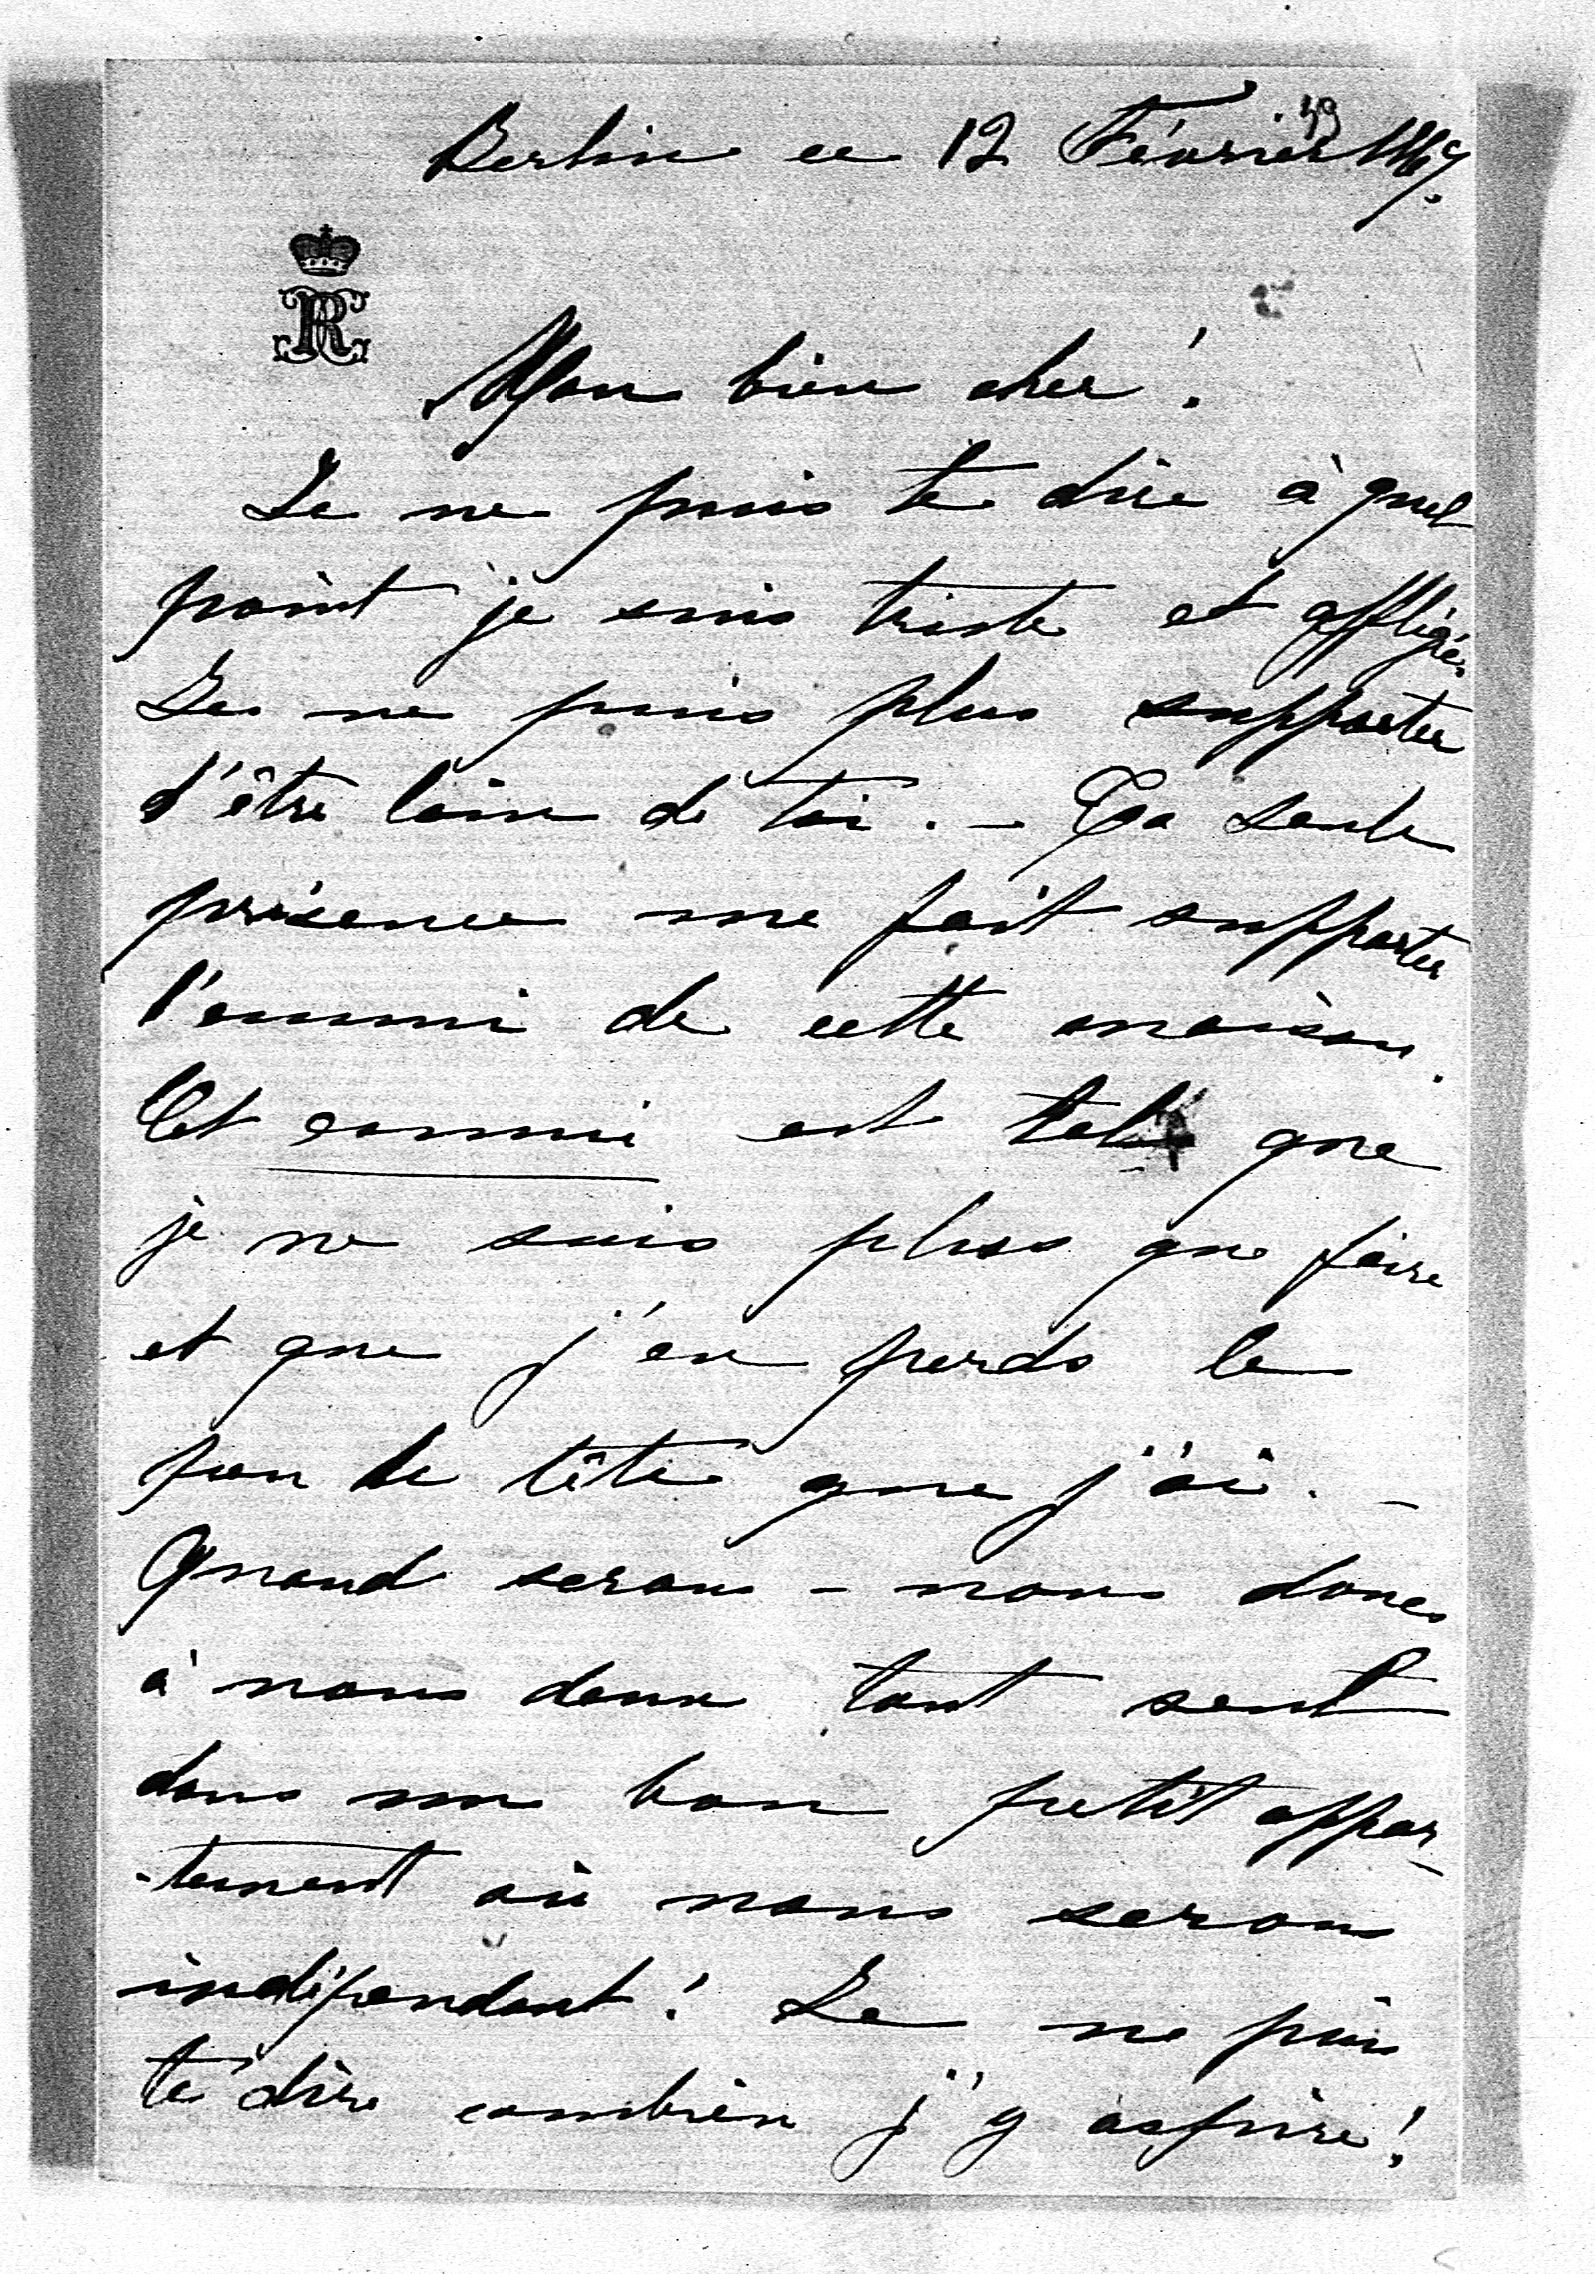 Berlin ce 12 Février
Mon bien cher!
Je ne puis te dire à quel
point je suis triste et affligée.
Je ne puis plus supporter
d'être loin de toi. – Ta seule
présence me fait supporter
l'ennui de cette maison.
Cet ennui est tel que
je ne sais plus que faire
et que j'en perds le
peu de tête que j'ai. –
Quand serons-nous donc
à nous deux tout seul
dans un bon petit appar-
-tement où nous serons
indépendant! Je ne puis
te dire combien j'y aspire!